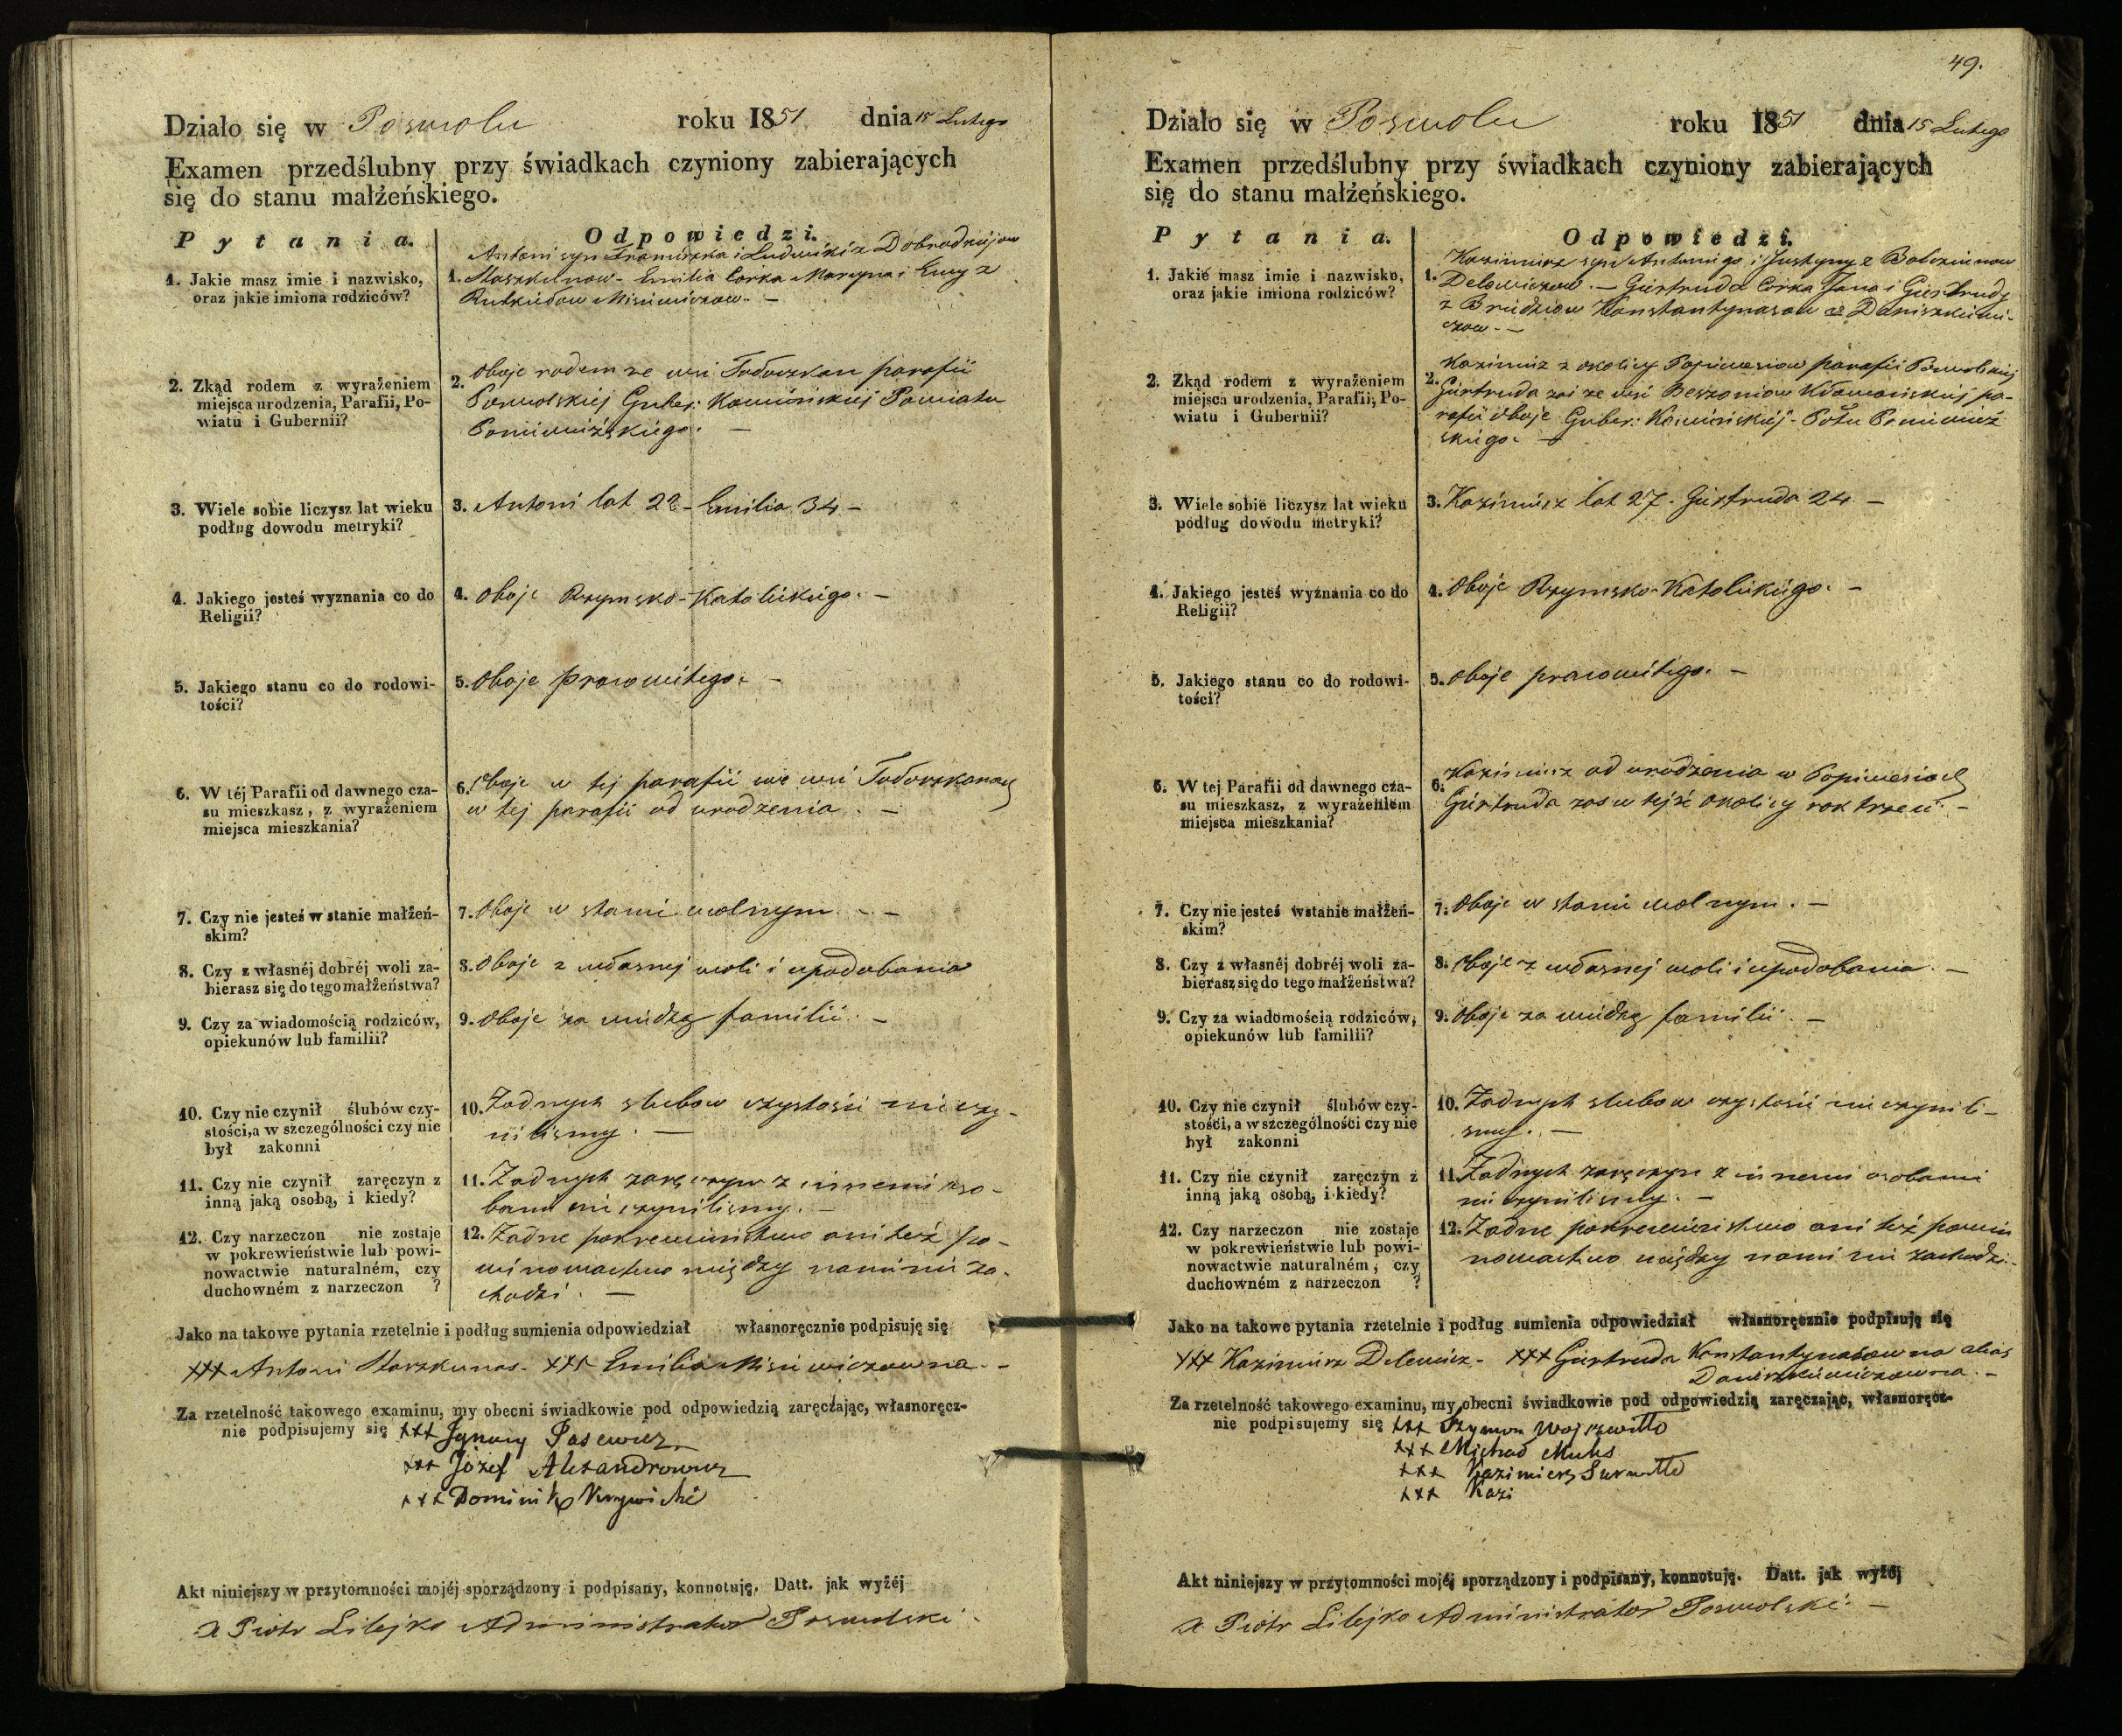 Działo się w Poswolu roku 1851 dnia 15 Lutego
Examen przedślubny przy świadkach czyniony zabierających
się do stanu małżeńskiego.
Pytania. Odpowiedzi.
1. Jakie masz imie i nazwisko,
oraz jakie imiona rodziców?
Antoni syn Franciszka i Ludwiki z
1. Staszkunow - Emilia Corka Marcyna i Ewy z
Rutkiewow Misiewiczow. -
2. Zkąd rodem z wyrażeniem
miejsca urodzenia, Parafii, Po-
wiatu i Gubernii?
2. Oboje rodem ze wsi parafii
Poswolskiej Guber: Kowieńskiej Powiatu
Poniewieżskiego. -
3. Wiele sobie liczysz lat wieku
podług dowodu metryki?
3. Antoni lat 22 - Emilia 34 -
4. Jakiego jesteś wyznania co do
Religii?
4. Oboje Rzymsko-Katolickiego. -
5. Jakiego stanu co do rodowi-
tości?
5. Oboje prawowitego. -
6. W téj Parafii od dawnego cza-
su mieszkasz, z wyrażeniem
miejsca mieszkania?
6. Oboje w tej parafii we wsi
w tej parafii od urodzenia. -
7. Czy nie jesteś w stanie małżeń-
skim?
7. Oboje w stanie wolnym. -
8. Czy z własnéj dobréj woli za-
bierasz się do tego małżeństwa?
8. Oboje z własnej woli i upodobania
9. Czy za wiadomością rodziców,
opiekunów lub familii?
9. Oboje za wiedzą familii. -
10. Czy nie czynił ślubów czy-
stości, a w szczególności czy nie
był zakonni
10. Żadnych slubow czystości nie czy-
nilismy. -
11. Czy nie czynił zaręczyn z
inną jaką osobą, i kiedy?
11. Żadnych zaręczyn z innemi oso-
bami nie czynilismy. -
12. Czy narzeczon nie zostaje
w pokrewieństwie lub powi-
nowactwie naturalném, czy
duchowném z narzeczon ?
12. Żadne pokrewieństwo ani też po-
winowactwo między nami nie za-
chodzi. -
Jako na takowe pytania rzetelnie i podług sumienia odpowiedział własnoręcznie podpisuję się
+++ Antoni Staszkunas. +++ Emilia Misiewiczowna. -
Za rzetelność takowego examinu, my obecni świadkowie pod odpowiedzią zaręczając, własnoręcz-
nie podpisujemy się +++ Jgnacy Pasewicz
+++ Józef Alexandrowicz
+++ Dominik Krzywicki
Akt niniejszy w przytomności mojéj sporządzony i podpisany, konnotuję. Datt. jak wyżéj
X Piotr Lilejko Administrator Poswolski.
49.
Działo się w Poswolu roku 1851 dnia 15 Lutego
Examen przedślubny przy świadkach czyniony zabierających
się do stanu małżeńskiego.
Pytania. Odpowiedzi.
1. Jakie masz imie i nazwisko,
oraz jakie imiona rodziców?
Kazimierz syn Antoniego i Justyny z
1. Delewiczow. - Giertruda Corka Jana i Giertrudy
z Konstantynasow
czow. -
2. Zkąd rodem z wyrażeniem
miejsca urodzenia, Parafii, Po-
wiatu i Gubernii?
Kazimierz z okolicy parafii Poswolskiej
2. Giertruda zaś ze wsi pa-
rafii oboje Guber: Kowieńskiéj - Pottu Poniewież
skiego. -
3. Wiele sobie liczysz lat wieku
podług dowodu metryki?
3. Kazimierz lat 27 - Giertruda 24. -
4. Jakiego jesteś wyznania co do
Religii?
4. Oboje Rzymsko-Katolickiego. -
5. Jakiego stanu co do rodowi-
tości?
5. Oboje prawowitego. -
6. W tej Parafii od dawnego cza-
su mieszkasz, z wyrażeniem
miejsca mieszkania?
Kazimierz od urodzenia w
6. Giertruda zas w tejże okolicy rok trzeci. -
7. Czy nie jesteś w stanie małżeń-
skim?
7. Oboje w stanie wolnym. -
8. Czy z własnéj dobréj woli za-
bierasz się do tego małżeństwa?
8. Oboje z własnej woli i upodobania. -
9. Czy za wiadomością rodziców,
opiekunów lub familii?
9. Oboje za wiedzą familii. -
10. Czy nie czynił ślubów czy-
stości, a w szczególności czy nie
był zakonni
10. Żadnych slubow czystości nie czynili-
smy. -
11. Czy nie czynił zaręczyn z
inną jaką osobą, i kiedy?
11. Żadnych zaręczyn z innemi osobami
nie czynilismy. -
12. Czy narzeczon nie zostaje
w pokrewieństwie lub powi-
nowactwie naturalném, czy
duchowném z narzeczon ?
12. Żadne pokrewieństwo ani też powi
nowactwo między nami nie zachodzi. -
Jako na takowe pytania rzetelnie i podług sumienia odpowiedział własnoręcznie podpisuję się
+++ Kazimierz Delewicz - +++ Giertruda Konstantynasowna alias
Daniszkiewiczowna. -
Za rzetelność takowego examinu, my obecni świadkowie pod odpowiedzią zaręczając, własnoręcz-
nie podpisujemy się +++ Szymon Wojszwiłło
+++ Michał Muks
+++ Kazimierz
+++ Kazi
Akt niniejszy w przytomności mojéj sporządzony i podpisany, konnotuję. Datt. jak wyżéj
X Piotr Lilejko Administrator Poswolski. -